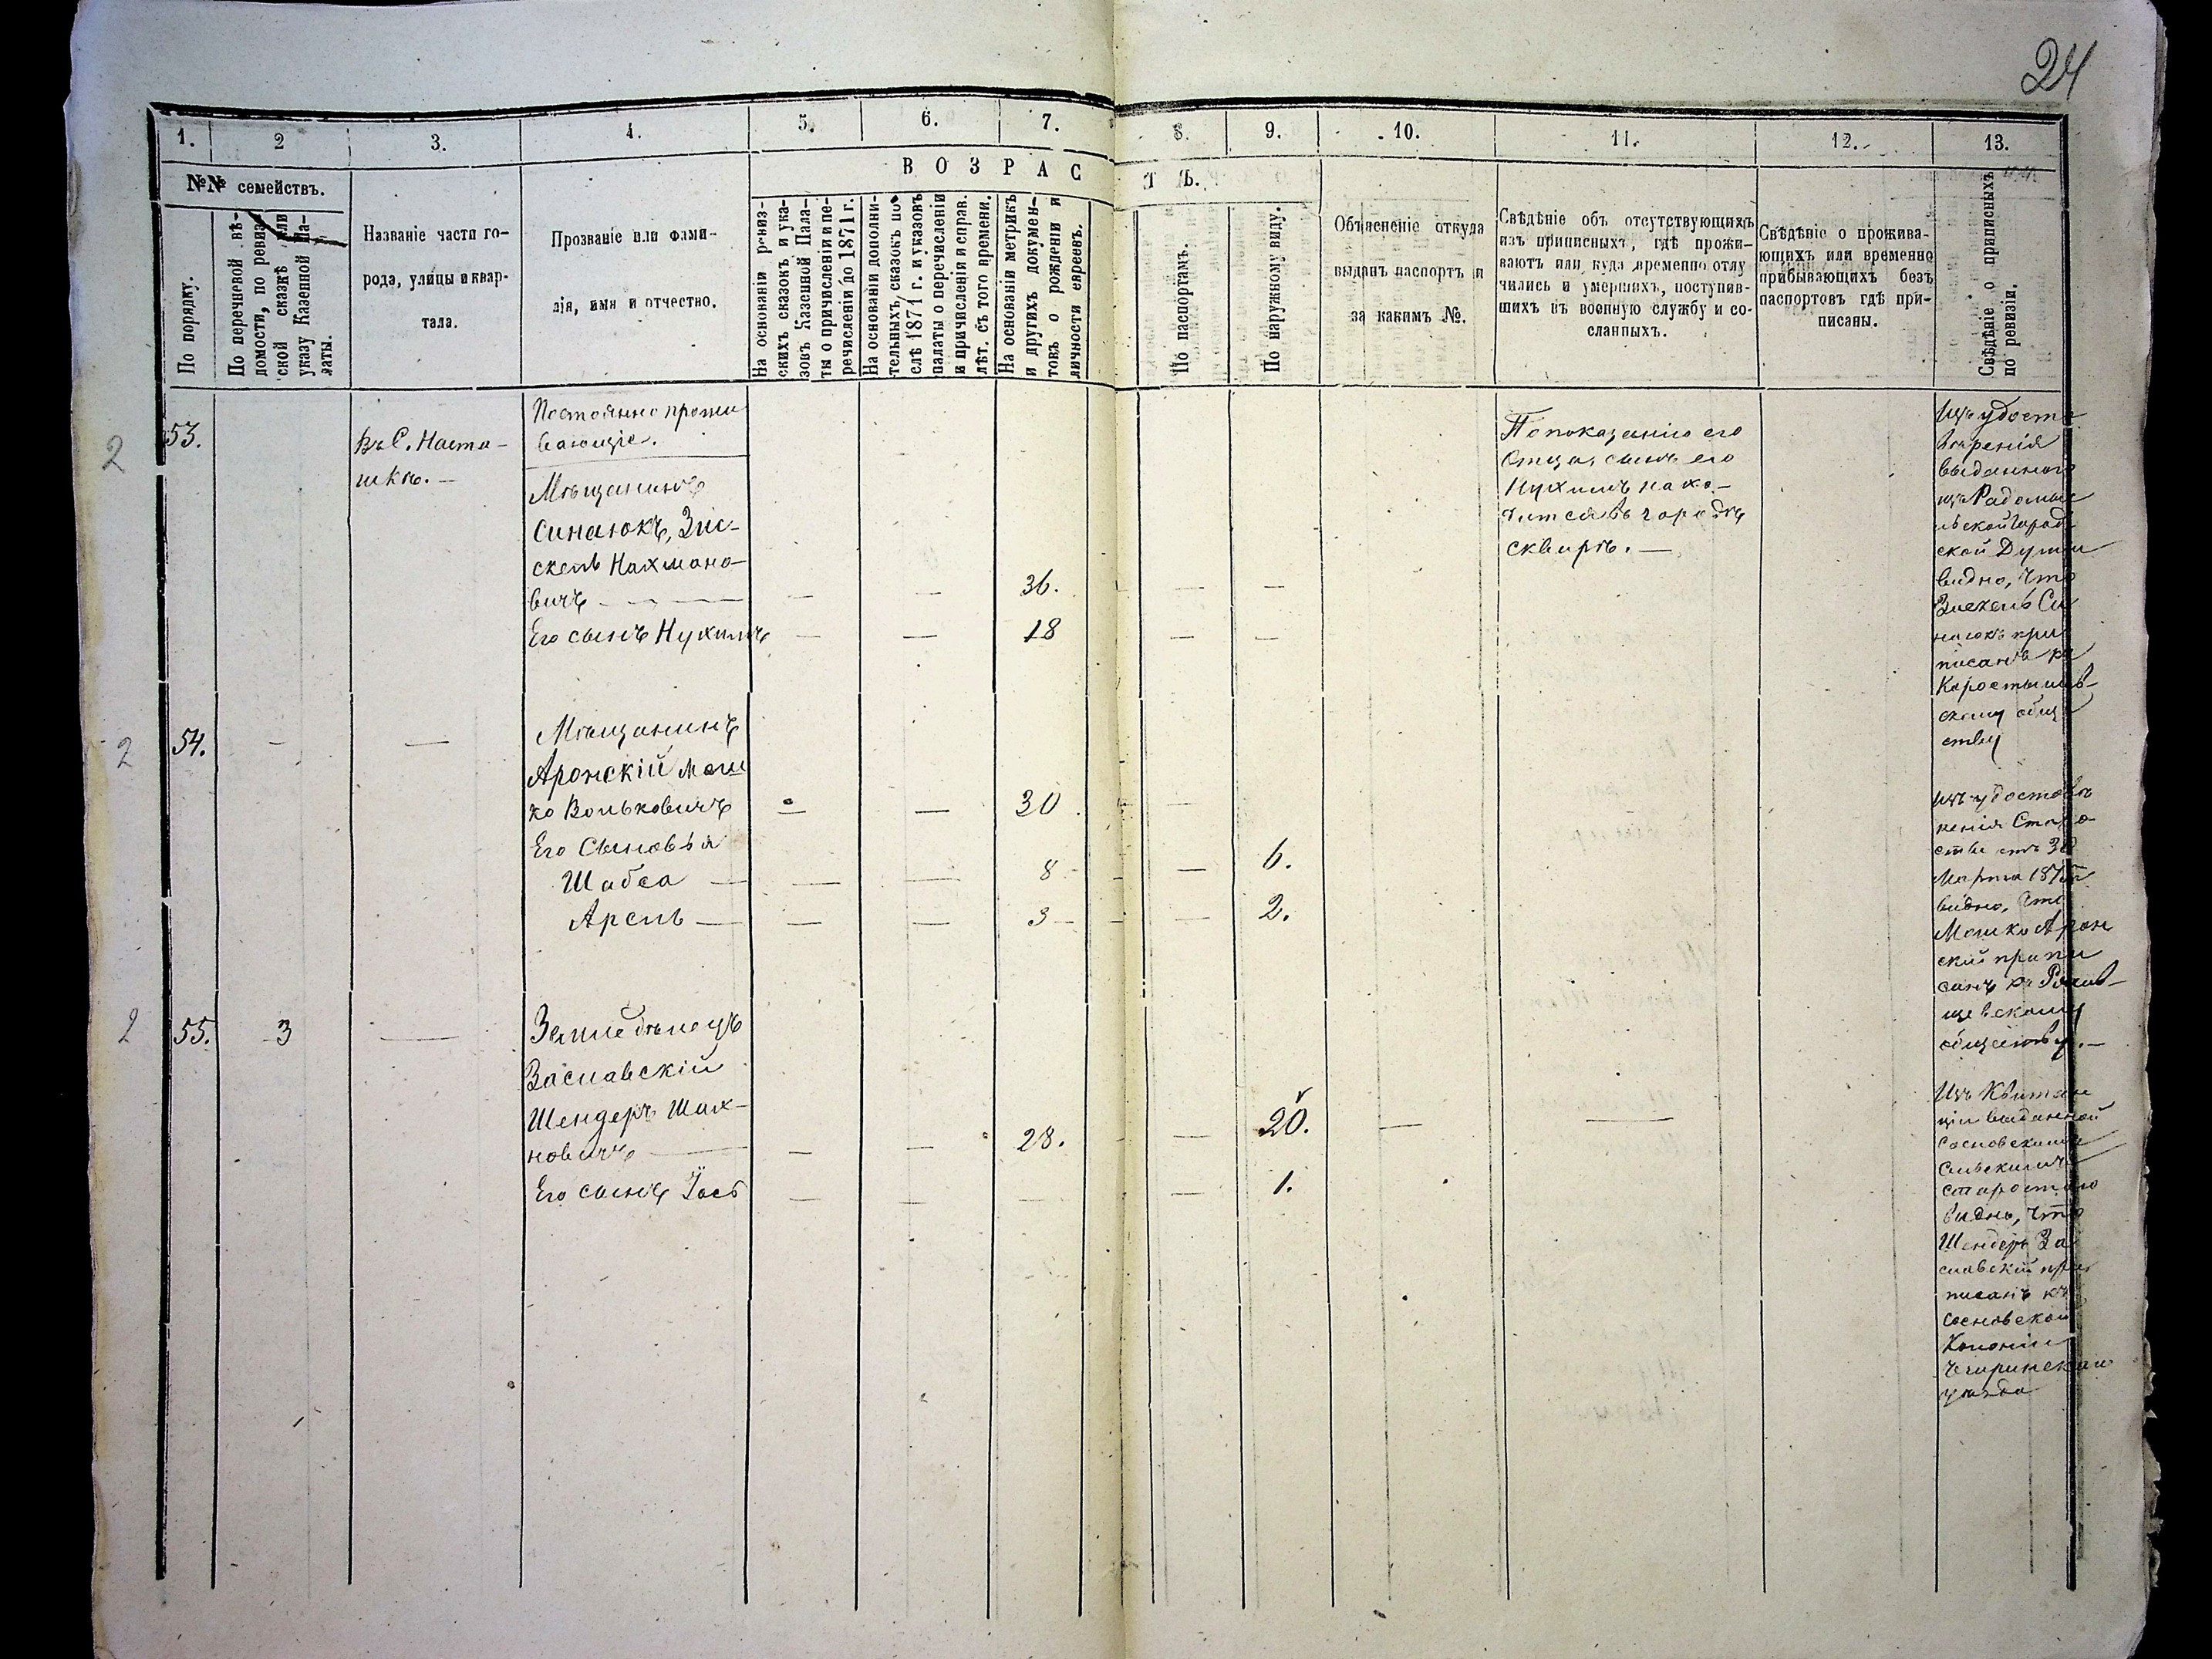 24
1. 2 3. 4. 5. 6. 7. 8. 9. 10. 11. 12. 13.
№№ семействъ.
ВОЗРАСТЪ.
По порядку.
По перечневой вѣ-
домости, по ревиз
ской сказкѣ или
указу Казенной Па-
латы.
Названіе части го-
рода, улицы и квар-
тала.
Прозваніе или фами-
лія, имя и отчество.
На основаніи ревиз-
скихъ сказокъ и ука-
зовъ Казенной Пала-
ты о причисленіи и пе-
речисленіи до 1871 г.
На основаніи дополни-
тельныхъ сказокъ по-
слѣ 1871 г. и указовъ
палаты о перечисленіи
и причисленіи и справ.
лѣт. съ того времени.
На основаніи метрикъ
и другихъ докумен-
товъ о рожденіи и
личности евреевъ.
По паспортамъ.
По наружному виду.
Объясненіе откуда
выданъ паспортъ и
за какимъ №.
Свѣдѣніе объ отсутствующихъ
изъ приписныхъ, гдѣ прожи-
ваютъ или куда временно отлу
чились и умершихъ, поступив-
шихъ въ военную службу и со-
сланныхъ.
Свѣдѣніе о прожива-
ющихъ или временно
прибывающихъ безъ
паспортовъ гдѣ при-
писаны.
Свѣдѣніе о приписныхъ
по ревизіи.
2
53.
Въ С. Наста-
шкѣ. —
Постоянно прожи
вающіе.
Мѣщанинъ
Синаюкъ, Зис-
кель Нахмано-
вичъ — — — — 36. — —
Его сынъ Нухимъ — — 18 — —
По показанію его
Отца, сынъ его
Нухимъ нахо-
дится въ городѣ
Сквирѣ. —
Изъ удосто
вѣренія
выданного
изъ Радомыс
льской Город
ской Думы
видно, что
Зискель Си
наюкъ при
писанъ къ
Коростышев-
скому общ
ству
2
54. — —
Мѣщанинъ
Аронскій Мош
ко Вольковичъ — — 30. —
Его Сыновья
Шабса — — — 8 — — 6.
Арель — — — 3 — — 2.
изъ удостовѣ
ренія Старо
ства отъ 30
Марта
видно, что
Мошко Арон
скій припи
санъ къ
обществу. —
2
55. 3 —
Земледѣлецъ
Заславскій
Шендеръ Шах-
новичъ — — — 28. — 20. — —
Его сынъ — — — — 1.
Изъ Квитан
ціи выданной
Сосновскимъ
Сельскимъ
старостою
видно, что
Шендеръ За
славскій при
писанъ къ
Сосновской
Колоніи
Чигиринскаго
уѣзда